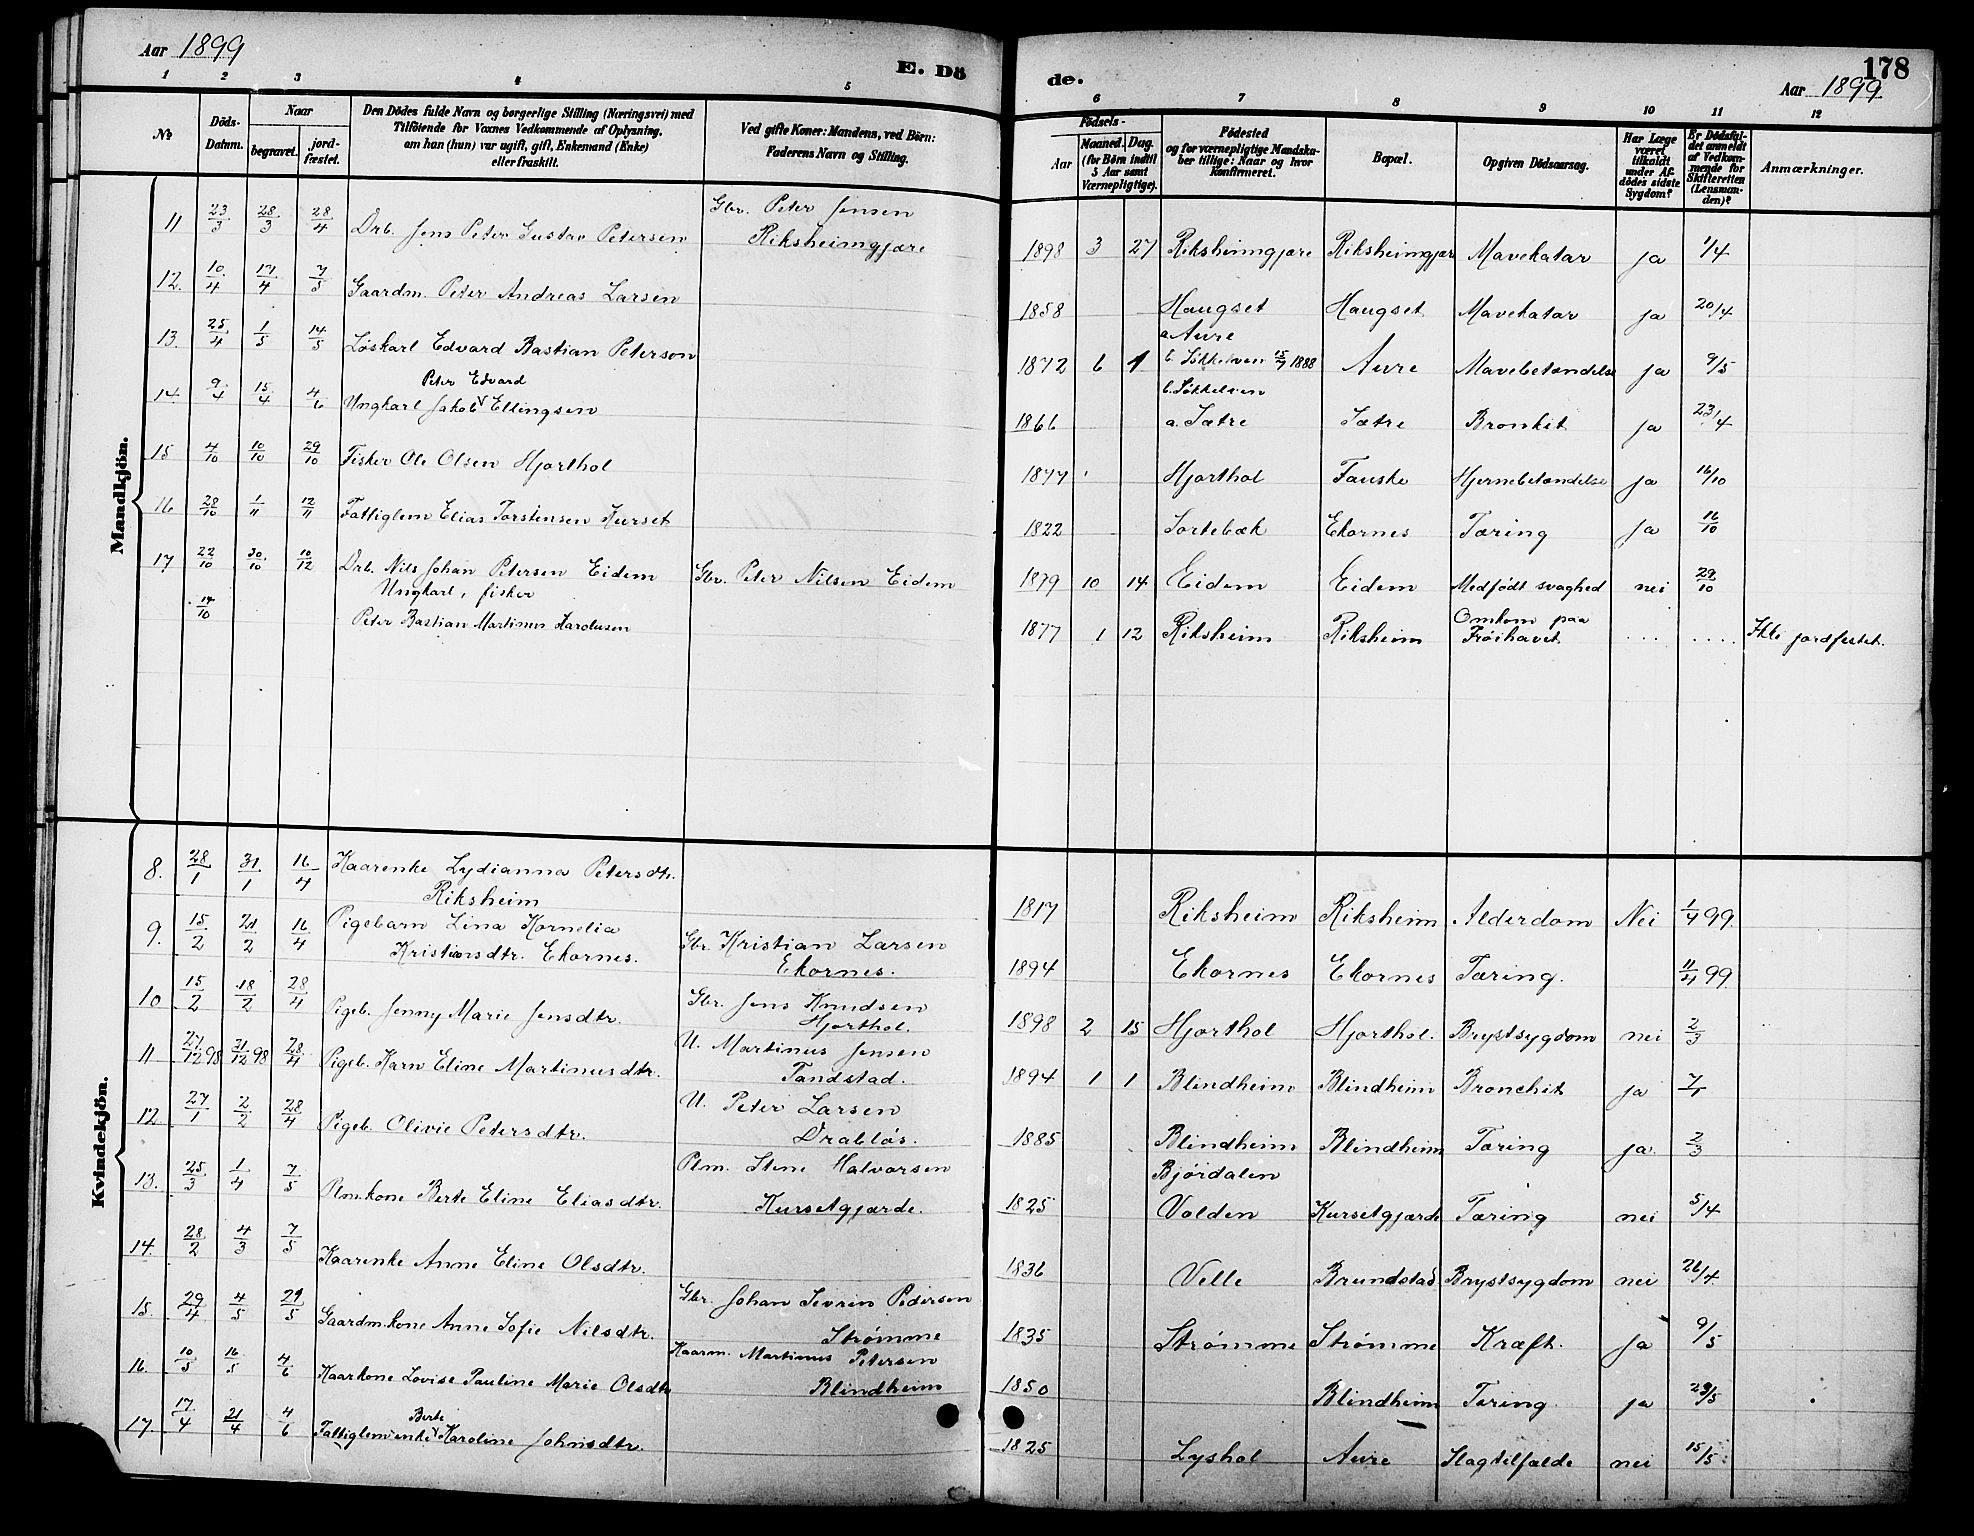 Aar 1899
E. Dö
de.
178
Aar 1899
1 2 3 4 5 6 7 8 9 10 11 12
No
Döds-Datum.
Naar
begravet.
jord-fæstet.
Den Dödes fulde Navn og borgerlige Stilling (Næringsvei) med
Tilföiende for Voxnes Vedkommende af Oplysning,
om han (hun) var ugift, gift, Enkemand (Enke)
eller fraskilt.
Ved gifte Koner: Mandens, ved Börn:
Faderens Navn og Stilling.
Födsels-
Aar
Maaned. Dag.
(for Börn indtil
5 Aar samt
Værnepligtige).
Födested
og for værnepligtige Mandska-
ber tillige: Naar og hvor
konfirmeret.
Bopæl.
Opgiven Dödsaarsag.
Har Læge
været
tilkaldt
under Af-
dödes sidste
Sygdom?
Er Dödsfal-
det anmeldt
af Vedkom-
mende for
Skifteretten
(Lensman-
den)?
Anmærkninger.
Mandkjön.
11 23/3 28/3 28/4 Drb. Jens Peter Gustav Petersen Gbr. Peter Jensen Riksheimgjære 1898 3 27 Riksheimgjære Riksheimgjær Mavekatar ja 1/4
12. 10/4 17/4 7/5 Gaardm. Peter Andreas Larsen 1858 Haugset Haugset Mavekatar ja 20/4
13. 25/4 1/5 14/5 Løskarl Edvard Bastian Peterson 1872 6 1 a Aure b. Søkkelven 15/7 1888 Aure Mavebetændelse ja 9/5
14. 9/4 15/4 4/6 Ungkarl Jakob Peter Edvard Ellingsen 1866 b. Søkkelven a. Sætre Sætre Bronkit ja 23/4
15 4/10 10/10 29/10 Fisker Ole Olsen Hjorthol 1877 Hjorthol Fauske Hjernebetændelse ja 16/10
16 28/10 1/11 12/11 Fattiglem Elias Torstensen Kurset 1822 Sortebæk Ekornes Tæring ja 16/10
17 22/10 30/10 10/12 Drb. Nils Johan Petersen Eidem Gbr. Peter Nilsen Eidem 1879 10 14 Eidem Eidem Medfødt svaghed nei 29/10
14/10 Ungkarl, fisker Peter Bastian Martinus Karolusen 1877 1 12 Riksheim Riksheim Omkom paa Frøihavet .... .... Ikke jordfestet.
Kvindekjön.
8. 28/1 31/1 16/4 Kaarenke Lydianna Petersdtr. Riksheim 1817 Riksheim Riksheim Alderdom Nei 1/4 99.
9. 15/2 21/2 16/4 Pigebarn Lina Kornelia Kristiansdtr. Ekornes. Gbr. Kristian Larsen Ekornes. 1894 Ekornes Ekornes Tæring. 11/4 99.
10 15/2 18/2 28/4 Pigeb. Jenny Marie Jensdtr. Gbr. Jens Knudsen Hjorthol. 1898 2 15 Hjorthol Hjorthol. Brystsygdom nei 2/3
11 27/12 98 31/12 98 28/4 Pigeb. Karn Eline Martinusdtr. U. Martinus Jensen Tandstad. 1894 1 1 Blindheim Blindheim Bronchit ja 7/1
12. 27/1 2/2 28/4 Pigeb. Olivie Petersdtr. U. Peter Larsen Drabløs. 1885 Blindheim Blindheim Tæring ja 2/3
13. 25/3 1/4 7/5 Plm.kone Berte Eline Eliasdtr. Plm. Stene Halvorsen Kursetgjærde. 1825 Bjørdalen Volden Kursetgjærde Tæring nei 5/4
14. 28/2 4/3 7/5 Kaarenke Anne Eline Olsdtr. 1836 Velle Brundstad Brystsygdom nei 26/4
15. 29/4 4/5 29/5 Gaardm.kone Anne Sofie Nilsdtr. Gbr. Johan Sevrin Pedersen Strømme 1835 Strømme Strømme Kræft. ja 9/5
16. 10/5 16/5 4/6 Kaarkone Lovise Pauline Marie Olsdtr Kaarm. Martinus Petersen Blindheim 1850 Blindheim Tæring. ja 29/5
17. 17/4 21/4 4/6 Fattiglem enke Berte Karoline Johnsdtr. 1825 Lyshol Aure Slagtilfælde nei 15/5